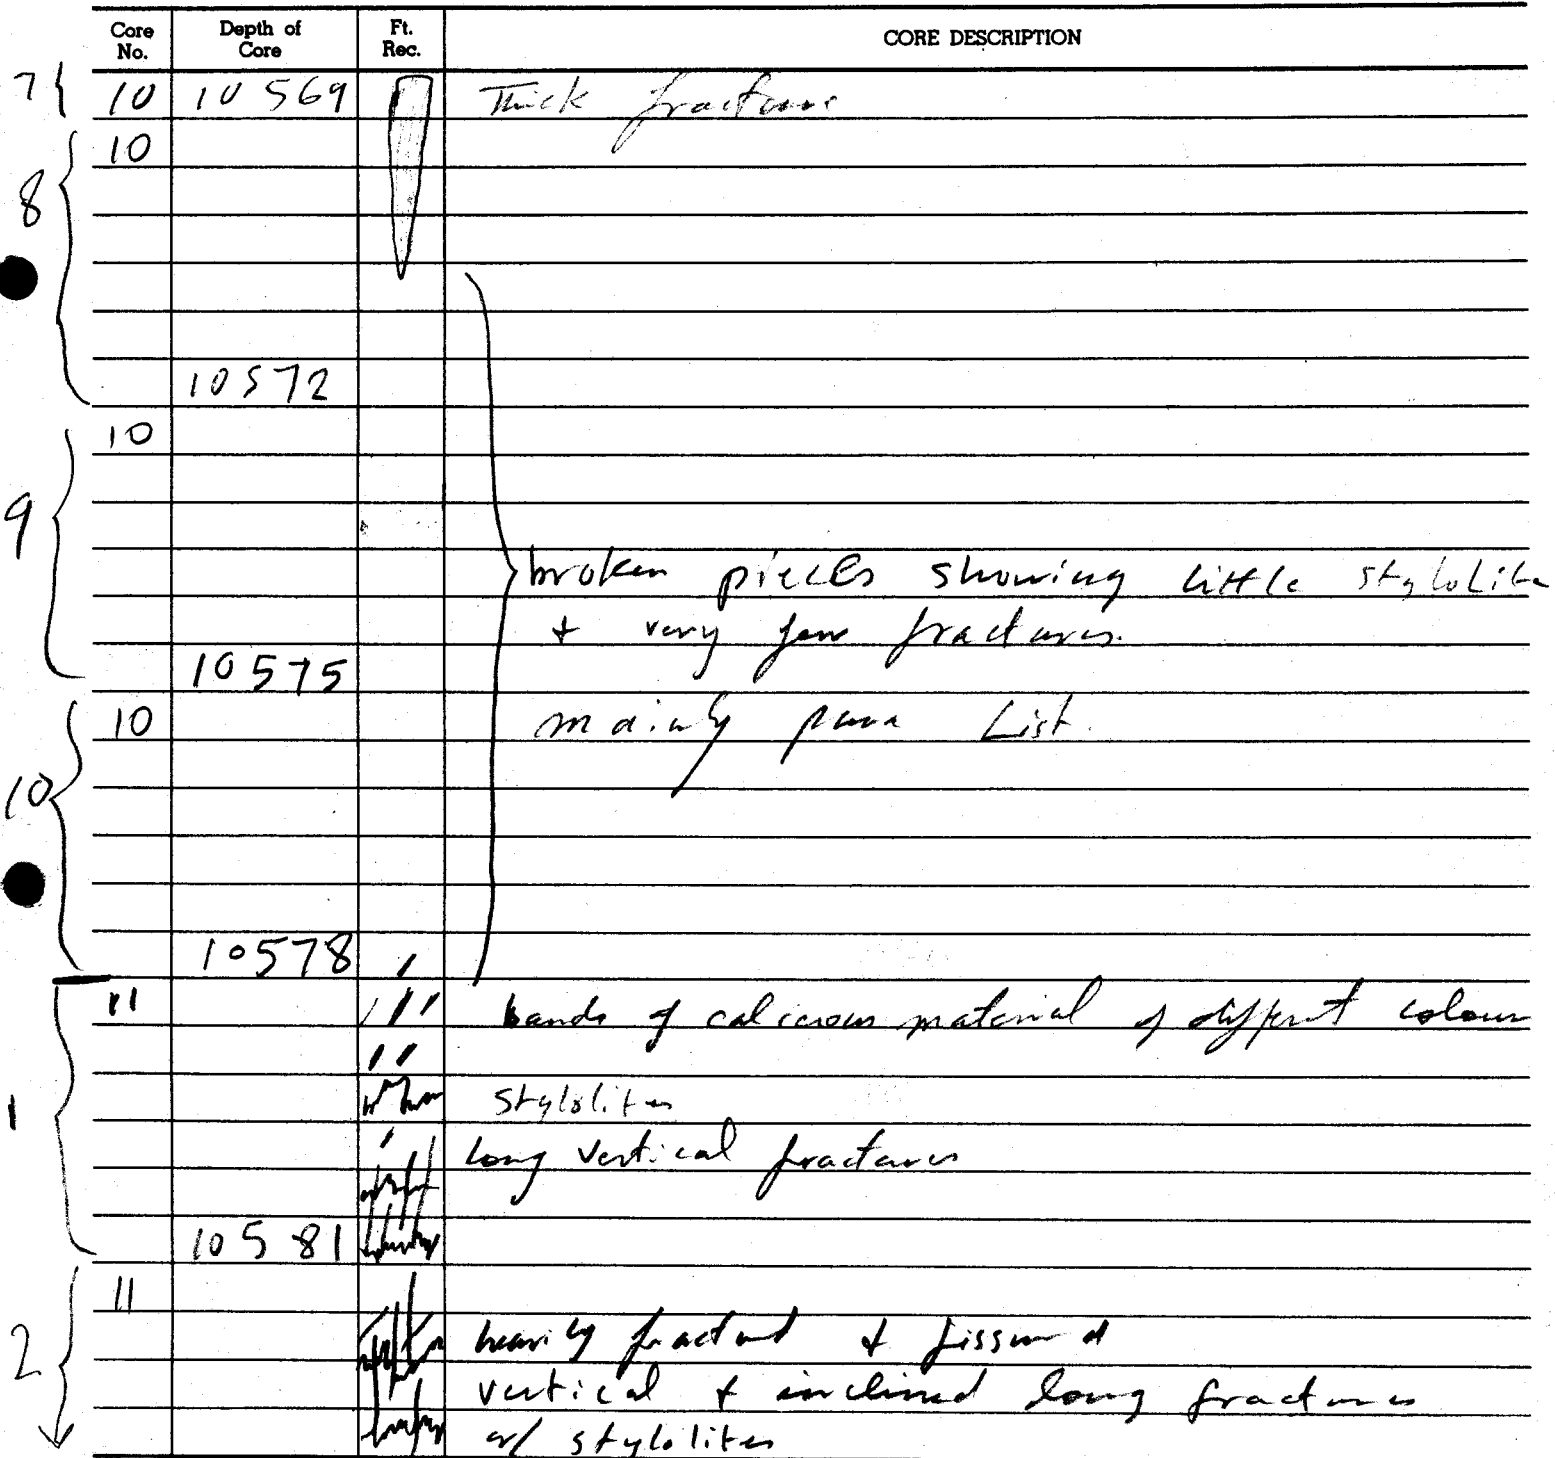 Core No.
Depth of Core
Ft. Rec.
CORE DESCRIPTION
7 10 10569 Thick fracture
10
8
10572
10
9
broken pieces showing little stylolite
+ very few fractures.
10575
10 mainly List.
10
10578
11 bands of calicrous material of different colour
1
stylolites
long vertical fractures
10581
11
2 heavily fractured + fissured
vertical + inclined long fractures
w/ stylolites